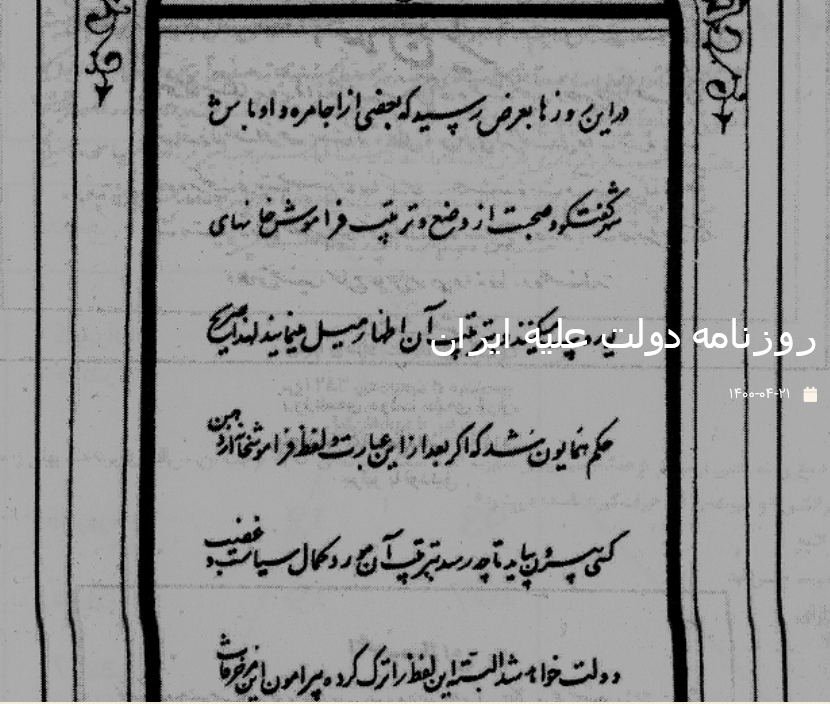 در این روزها بعرض رسید که بعضی از اجامره و اوباش
شهر گفتگو و صحبت از وضع و ترتیب فراموش خانهای
میکنند و بترتیب آن اظهار میل مینمایند لهذا صریح
حکم همایون شد که اگر بعد از این عبارت و لفظ فراموشخانه از دهن
کسی بیرون بیاید تا چه رسد بترتیب آن مورد کمال سیاست و غضب
دولت خواهد شد البته این لفظ را ترک کرده پیرامون این مزخرفات
روزنامه دولت علیه ایران
۱۴۰۰-۰۴-۲۱